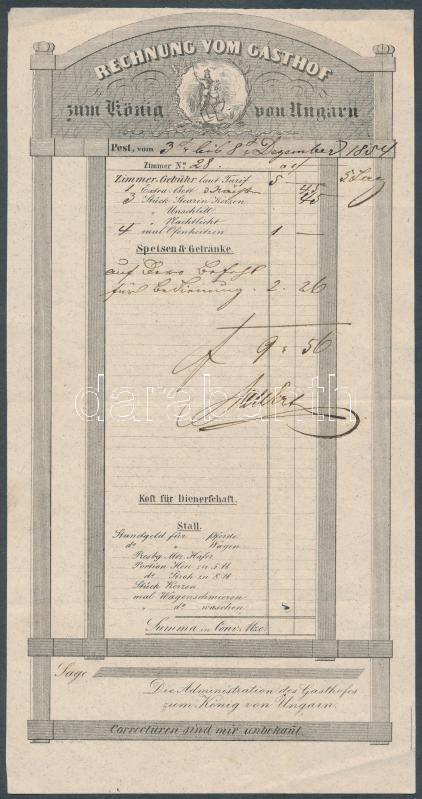 RECHNUNG VOM GASTHOF
zum König von Ungarn
Pest, vom 3t bis 8t Dezember 1854
Zimmer No 28.
Zimmer-Gebühr laut Tarif 5 — 5 Tag
1 Extra-Bett 45
3 Stück Stearin Kerzen 45
" Unschlitt
" Nachtlicht
4 mal Ofenheitzen 1 —
Speisen & Getränke.
auf Befehl
für Bedienung . 2 . 26
f 9 . 56
Kost für Dienerschaft.
Stall.
Standgeld für Pferde
dto " Wägen
Presbg. Mtz. Hafer
Portion Heu zu 5 ℔
dto Stroh zu 8 ℔
Stück Kerzen
mal Wagenschmieren
" dto waschen
Summa in Conv. Mze.
darabanth
Sage
Die Administration des Gasthofes
zum König von Ungarn.
Correcturen sind mir unbekant.